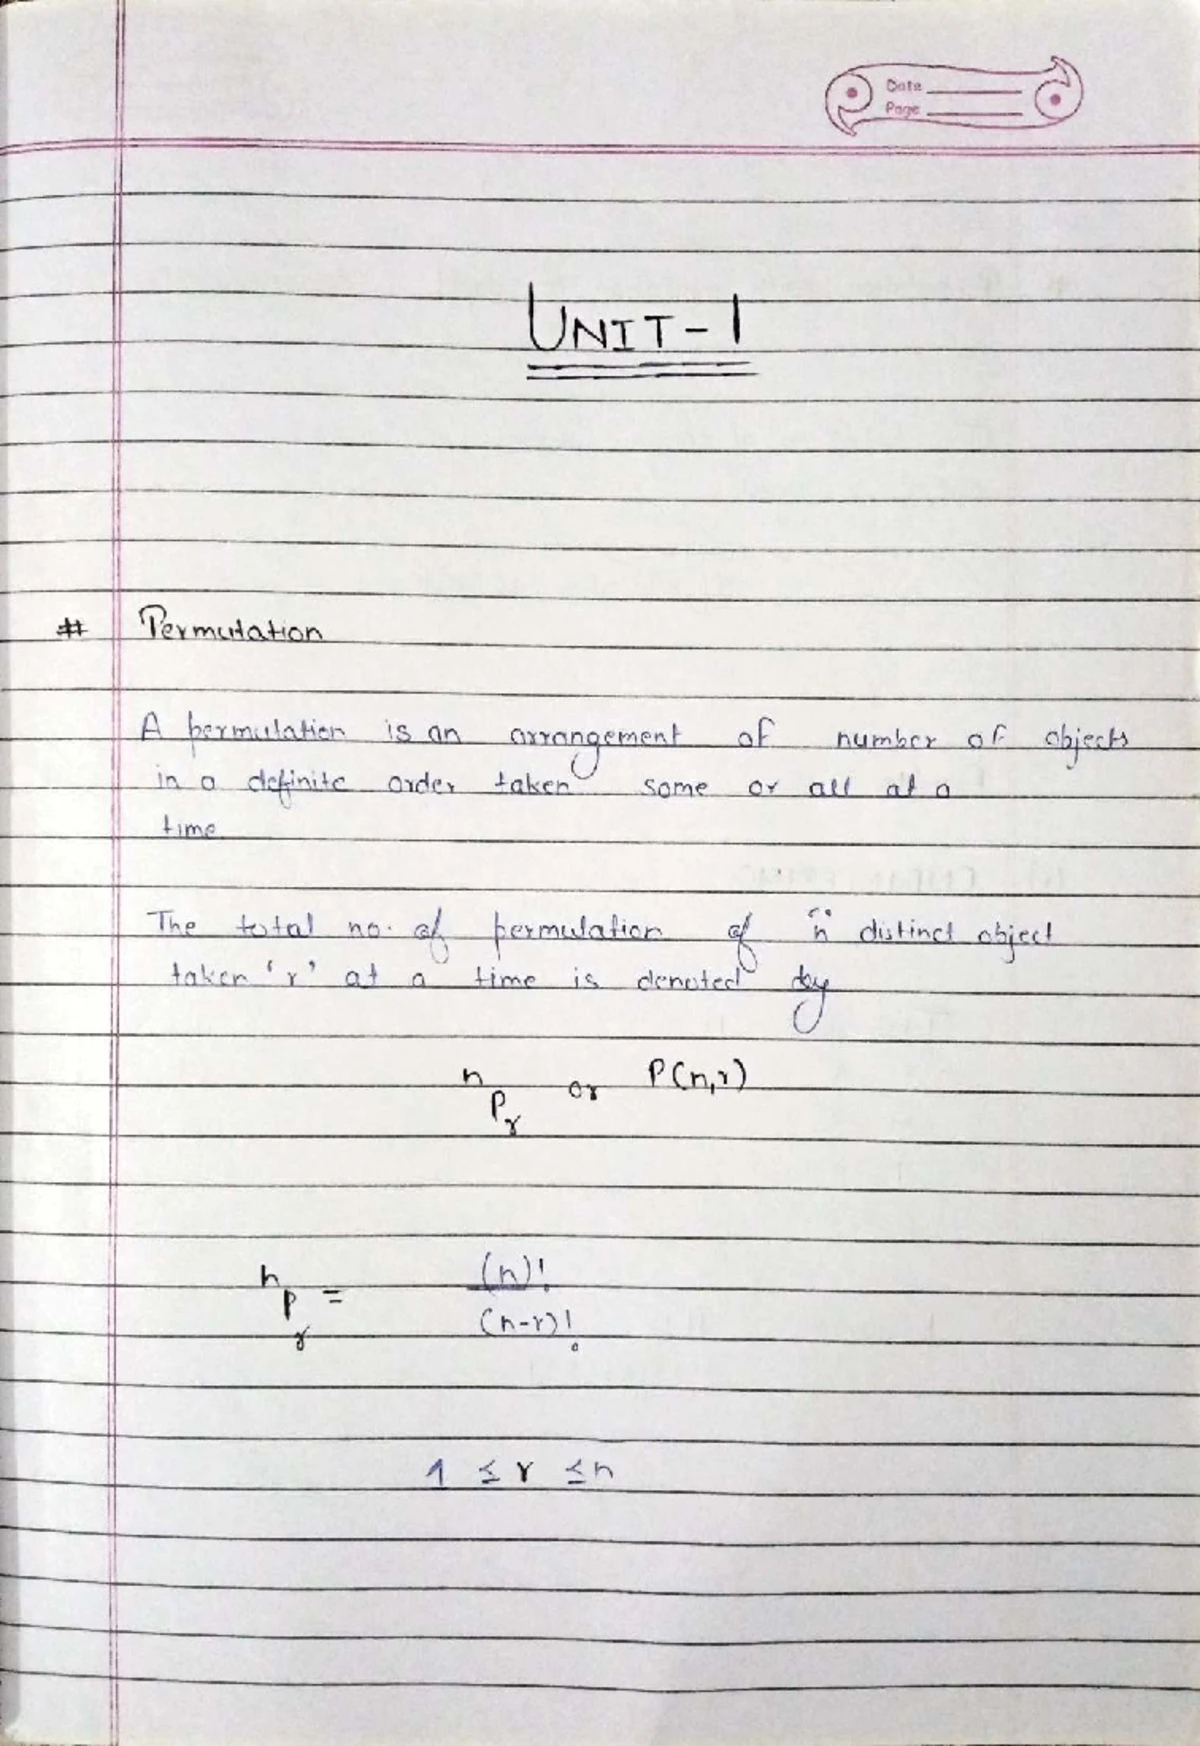 Date
Page
UNIT-1
# Permutation
A permutation is an arrangement of number of objects
in a definite order taken some or all at a
time
The total no. of permutation of "n distinct object
taken 'r' at a time is denoted by
nPr or P(n,r)
nPr = (n)!
(n-r)!
1 ≤ r ≤ n